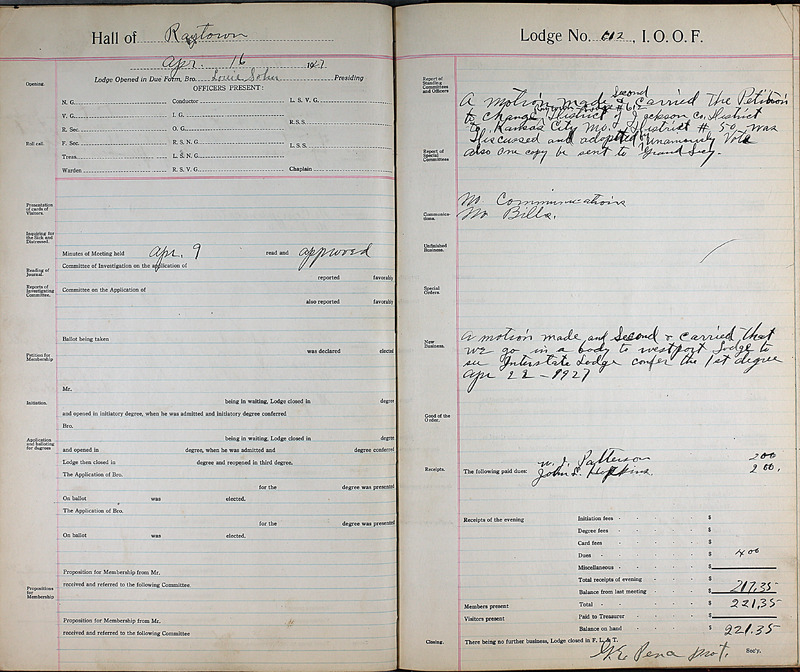 Hall of Raytown
Apr. 16 1927
Lodge Opened in Due Form, Bro. Louie Presiding
Opening.
OFFICERS PRESENT:
N. G. Conductor L. S. V. G.
V. G. I. G.
R. S. S.
R. Sec. O. G.
Roll call.
F. Sec. R. S. N. G.
L. S. S.
Treas. L. S. N. G.
Warden R. S. V. G. Chaplain
Presentation of cards of Visitors.
Inquiring for the Sick and Distressed.
Minutes of Meeting held Apr. 9 read and approved
Reading of Journal.
Committee of Investigation on the application of
reported favorably
Reports of Investigating Committee.
Committee on the Application of
also reported favorably
Ballot being taken
was declared elected
Petition for Membership
Mr.
Initiation.
being in waiting, Lodge closed in degree
and opened in initiatory degree, when he was admitted and initiatory degree conferred
Bro.
Application and balloting for degrees
being in waiting, Lodge closed in degree
and opened in degree, when he was admitted and degree conferred
Lodge then closed in degree and reopened in third degree.
The Application of Bro.
for the degree was presented
On ballot was elected.
The Application of Bro.
for the degree was presented
On ballot was elected.
Proposition for Membership from Mr.
received and referred to the following Committee.
Propositions for Membership
Proposition for Membership from Mr.
received and referred to the following Committee
Lodge No. 612, I. O. O. F.
Report of Standing Committees and Officers
A motion made & Second & Carried the Petition
to Change Raytown Lodge # 612 District of Jackson Co. District
to Kansas City Mo. District # 50 was
Discussed and adopted by unamously Vote
also one copy be sent to Grand Secy.
Report of Special Committees
No Communications
Communications.
No Bills.
Unfinished Business.
Special Orders.
New Business.
A motion made and Second & Carried that
we go in a body to westport Lodge to
see Interstate Lodge confer the 1st degree
Apr 22 - 1927
Good of the Order.
Receipts.
The following paid dues: W. J. Patterson 2 00
John L. Hopkins. 2 00.
Receipts of the evening Initiation fees $
Degree fees $
Card fees $
Dues $ 4 00
Miscellaneous $
Total receipts of evening $
Balance from last meeting $ 217.35
Members present Total $ 221.35
Visitors present Paid to Treasurer $
Balance on hand $ 221.35
Closing.
There being no further business, Lodge closed in F. L. & T.
Sec'y.